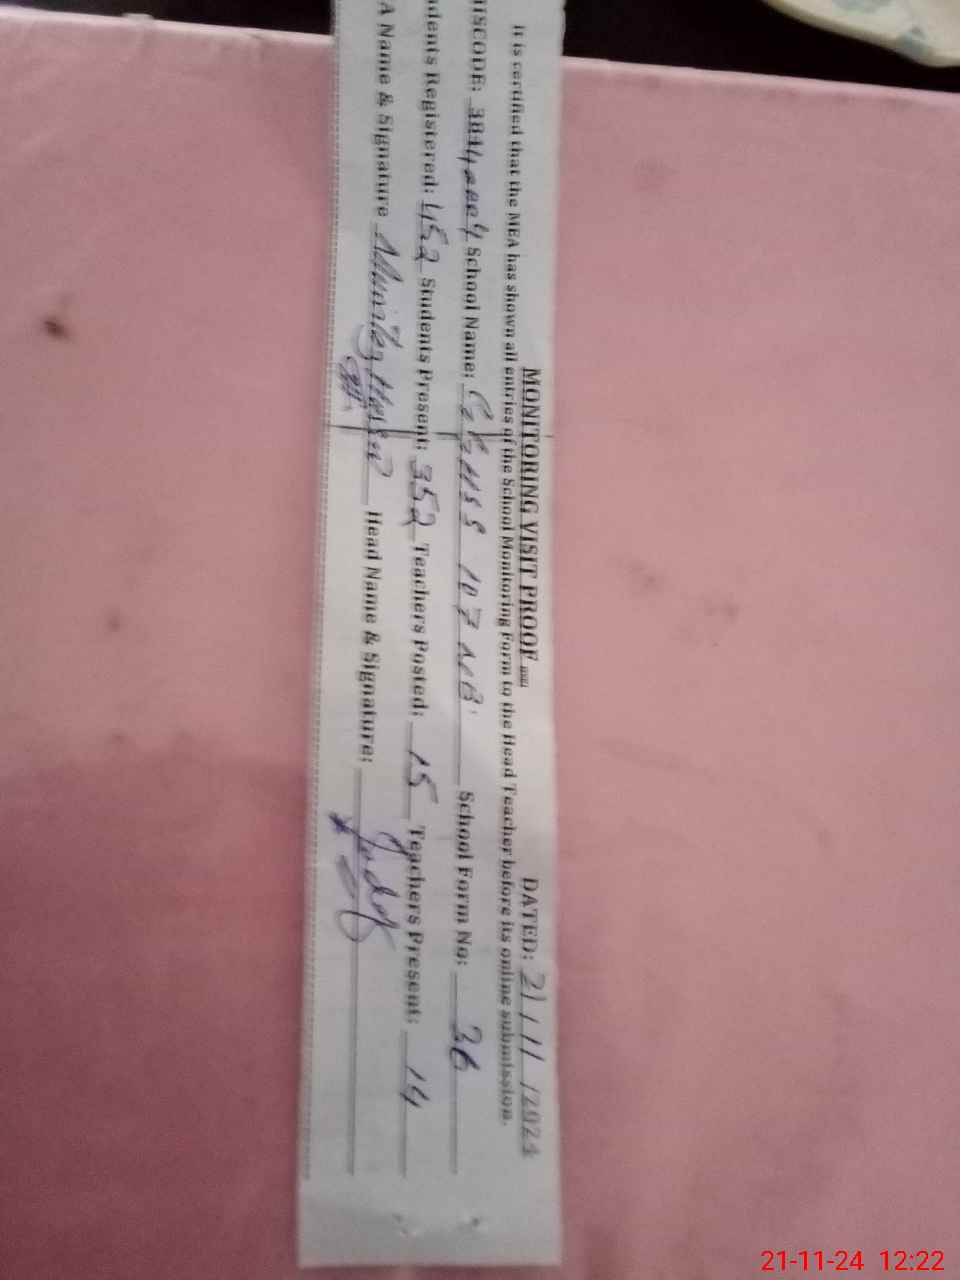 MONITORING VISIT PROOF DATED: 21/11/2024
It is certified that the MEA has shown all entries of the School Monitoring Form to the Head Teacher before its online submission.
ISCODE: School Name: GGHSS 107 NB. School Form No: 36
dents Registered: 452 Students Present: 352 Teachers Posted: 15 Teachers Present: 14
A Name & Signature Head Name & Signature:
21-11-24 12:22